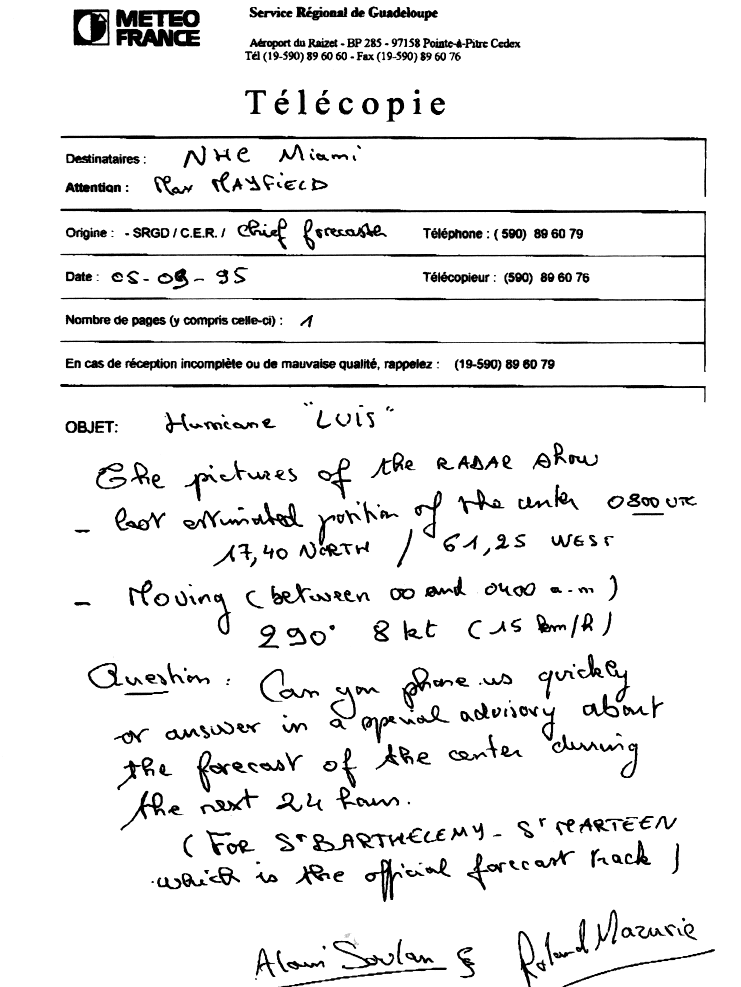 METEO
FRANCE
Service Régional de Guadeloupe
Aéroport du Raizet - BP 285 - 97158 Pointe-à-Pitre Cedex
Tél (19-590) 89 60 60 - Fax (19-590) 89 60 76
Télécopie
Destinataires : NHC Miami
Attention : Max MAYFIELD
Origine : - SRGD / C.E.R. / Chief forecaster Téléphone : ( 590) 89 60 79
Date : 05-09-95 Télécopieur : (590) 89 60 76
Nombre de pages (y compris celle-ci) : 1
En cas de réception incomplète ou de mauvaise qualité, rappelez : (19-590) 89 60 79
OBJET: Hurricane "LUIS"
The pictures of the RADAR show
- last estimated position of the center 0800 UTC
17,40 NORTH / 61,25 WEST
- Moving (between 00 and 0400 a.m)
290° 8 kt (15 km/h)
Question : Can you phone us quickly
or answer in a special advisory about
the forecast of the center durring
the next 24 hours.
(FOR St BARTHELEMY - St MARTEEN
which is the official forecast track)
Alain Soulan & Roland Mazurie